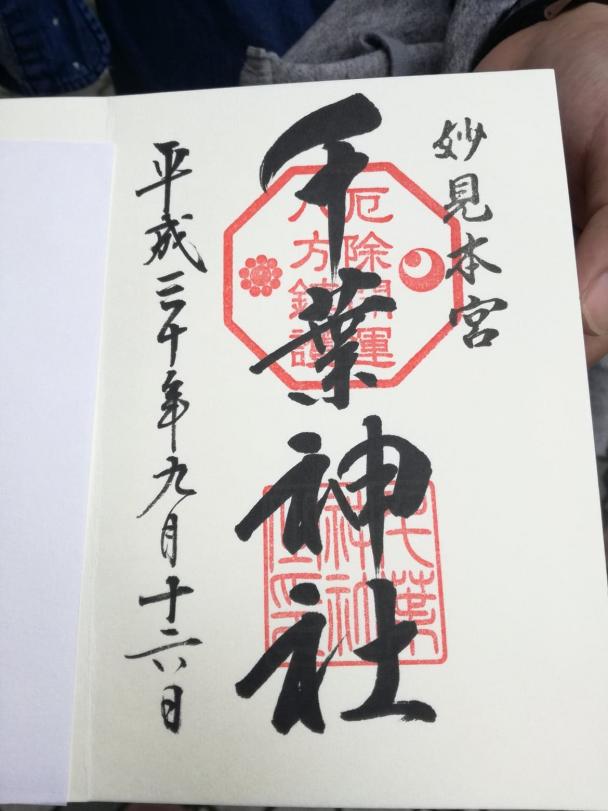 妙見本宮
千葉神社
厄除開運
八方鎮護
平成三十年九月十六日